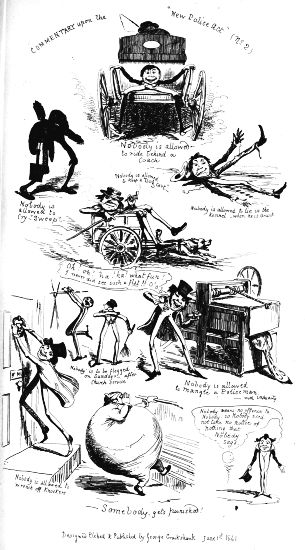 COMMENTARY upon the "New Police Act" (No 2)
Nobody is allowed
to ride behind a
Coach
Nobody is
allowed to
cry "Sweep"
Nobody is allowed
to keep a "Dog Cart"
Nobody is allowed to lie in the
kennel when he is drunk
Oh oh! ha! ha! what fun
ever see such a Flat
Nobody is to be flogged
on Sundays after
Church Service
Nobody is allowed
to mangle a Policeman
with Impunity
Nobody is allowed to
wrench off Knockers
Nobody means no offence to
Nobody so Nobody need
not take no notice of
nothing that
Nobody
says
Somebody gets punished!
Designed Etched & Published by George Cruikshank June 1st